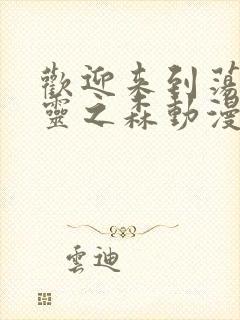 歡迎来到蕩
靈之森動漫
雲迪